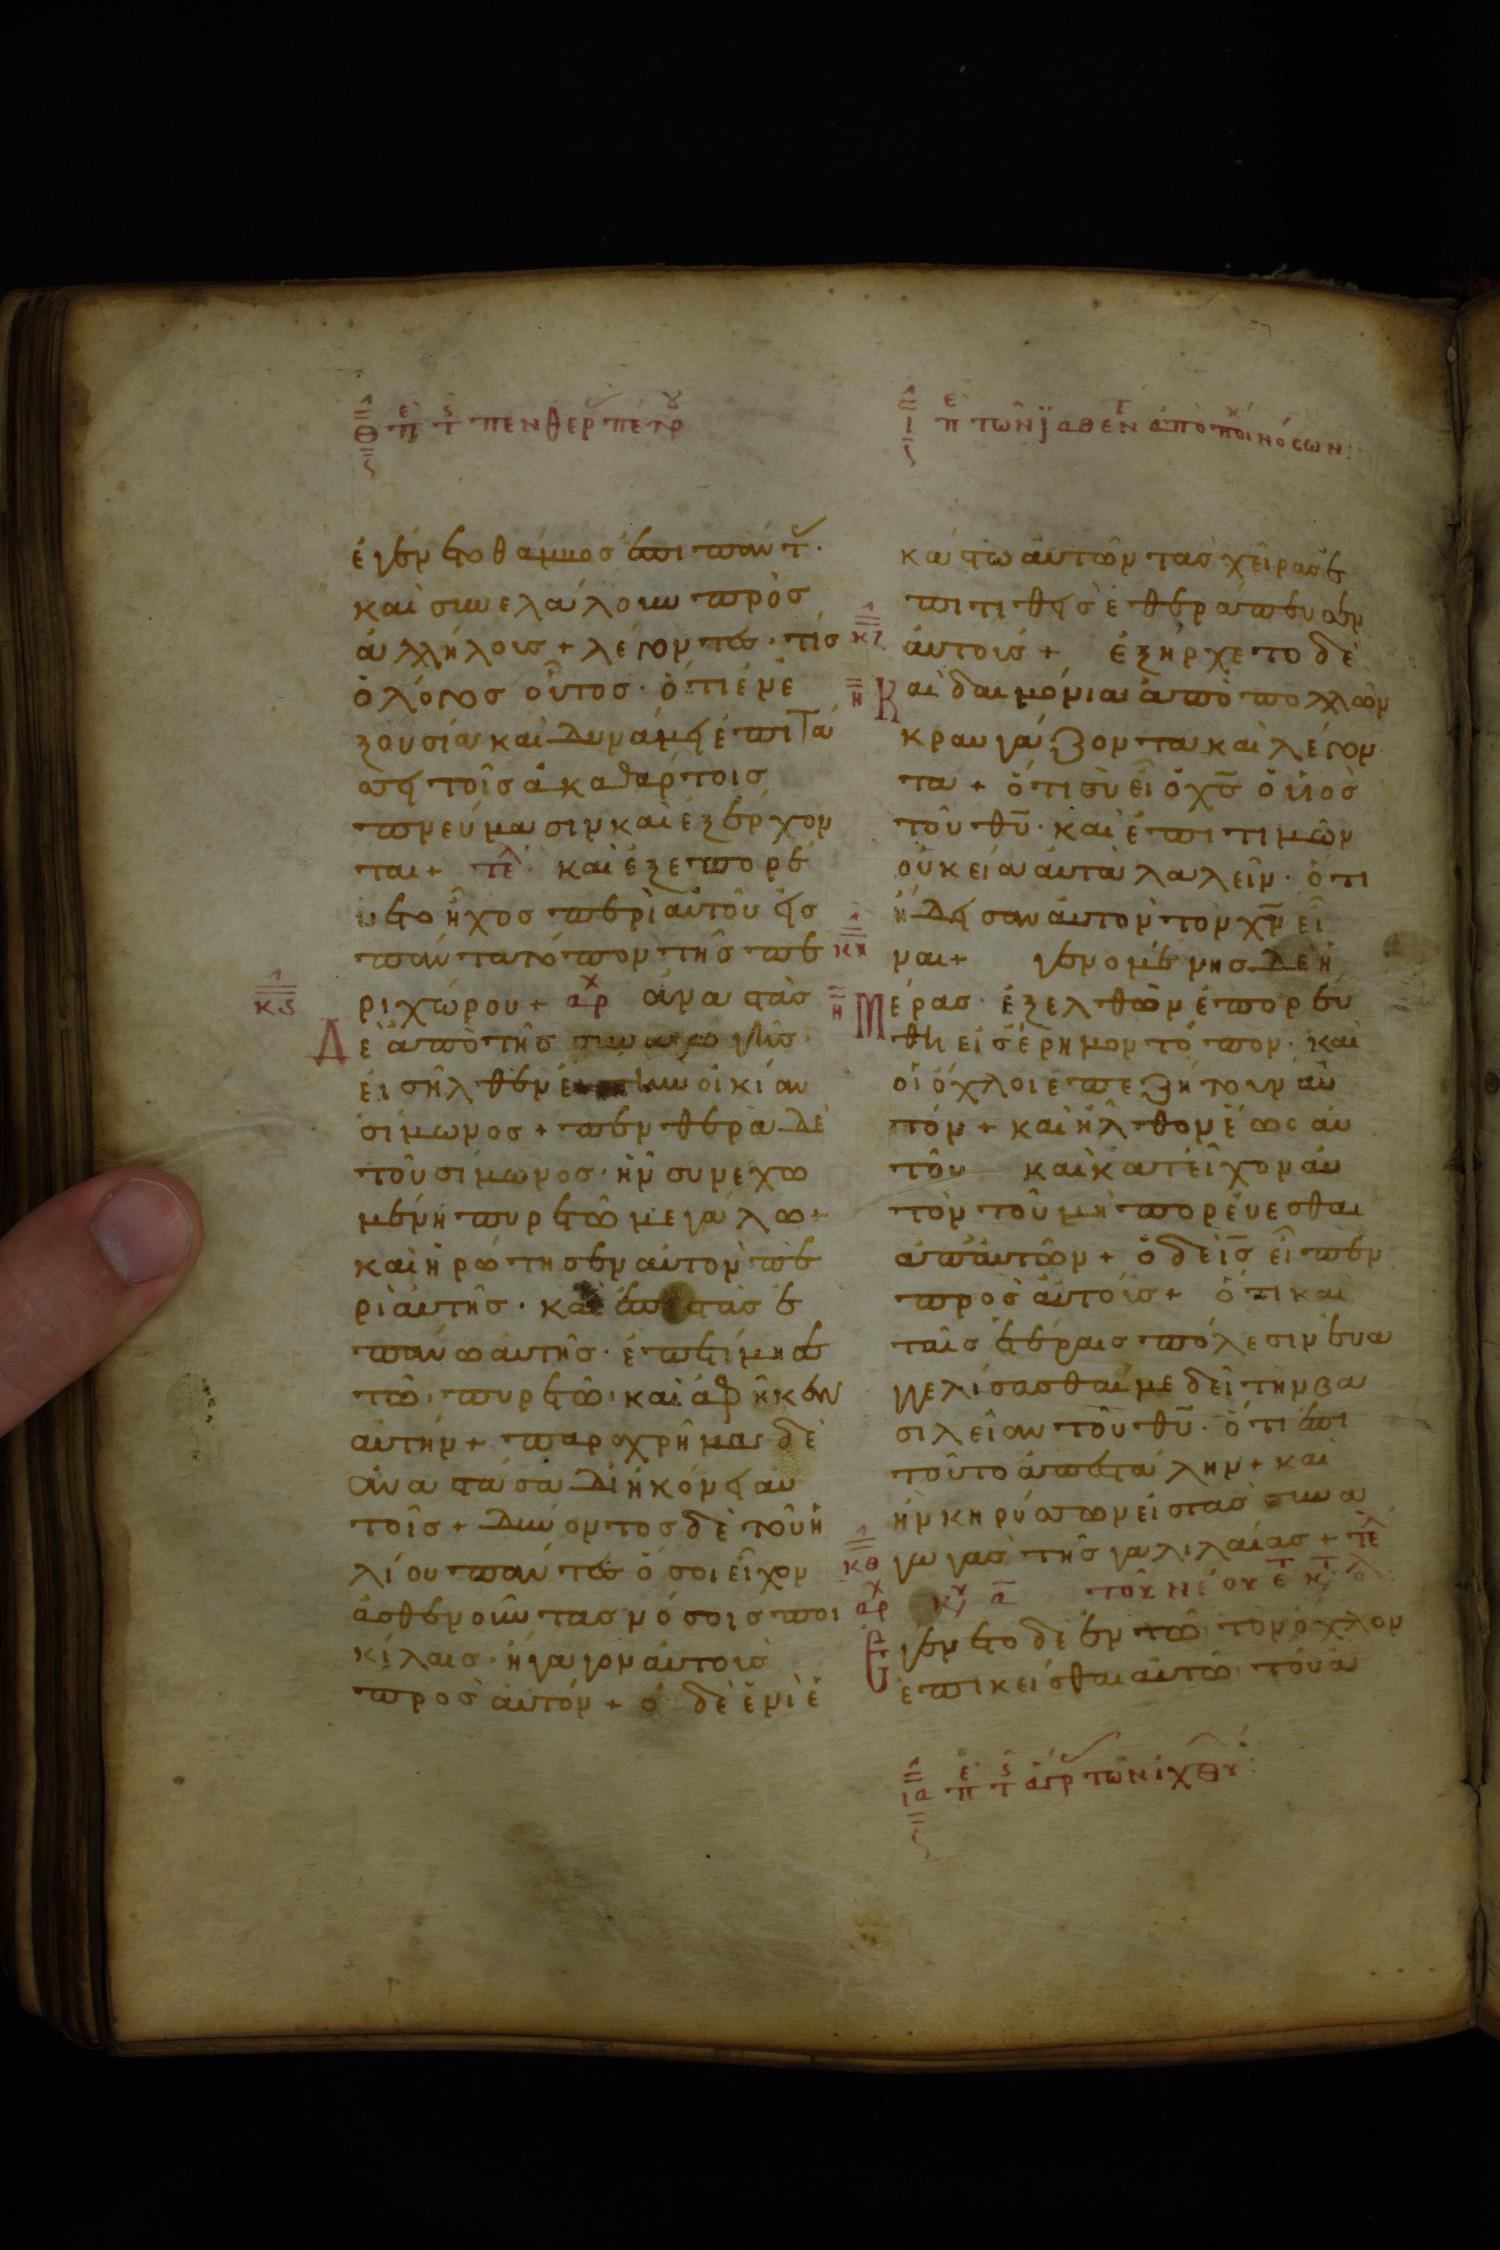 θ π τ πενθερ πετρ
ἐγένετο θάμβος ἐπι παντ·
καὶ συνελάλουν πρὸσ
ἀλλήλους + λέγοντες· τίσ
ὁ λόγος οὗτος· ὅτι ἐν ἐ
ξουσία καὶ δυνάμει ἐπιτά
σσει τοῖς ἀκαθάρτοις
πνεύμασιν καὶ ἐξέρχον
ται + τελ καὶ ἐξεπορεύ
ετο ἦχος περὶ αὐτοῦ εἰς
πάντα τόπον τῆς πε
κς
ριχώρου + αρχ ἀναστὰς
Δὲ ἀπὸ τῆς συναγωγῆς·
εἰσῆλθεν οἰκίαν
σίμωνος + πενθερὰ δὲ
τοῦ σίμωνος· ἦν συνεχο
μένη πυρετῶ μεγάλω +
καὶ ἠρώτησεν αὐτὸν πε
ρὶ αὐτῆς· καὶ ἐπιστὰς ἐ
πάνω αὐτῆς· ἐπετίμησε
τῶ πυρετῶ· καὶ ἀφῆκεν
αὐτήν + παραχρῆμα δὲ
ἀναστᾶσα διηκόνει αὐ
τοῖς + δύνοντος δὲ τοῦ ἡ
λίου πάντες ὅσοι εἶχον
ἀσθενοῦντας νόσοις ποι
κίλαις· ἤγαγον αὐτοὺς
πρὸς αὐτόν + ὁ δὲ ἑνὶ ἑ
ι π τῶν ἰαθέντ ἀπὸ ποικ νόσων
κάστω αὐτῶν τὰς χεῖρας ἐ
πιτιθεὶς ἐθεράπευσεν
κζ
αὐτούς + ἐξήρχετο δὲ
η
Και δαιμόνια ἀπὸ πολλῶν
κραυγάζοντα καὶ λέγον
τα + ὅτι σὺ εἶ ὁ χς ὁ υἱὸς
τοῦ θυ· καὶ ἐπιτιμῶν
οὐκ εἴα αὐτὰ λαλεῖν· ὅτι
ἤδεισαν αὐτὸν τὸν χν εἶ
κη
ναι + γενομένης δὲ ἡ
η
Μέρας· ἐξελθὼν ἐπορεύ
θη εἰς ἔρημον τόπον· καὶ
οἱ ὄχλοι ἐπεζήτουν αὐ
τόν + καὶ ἦλθον ἕως αὐ
τοῦ καὶ κατεῖχον αὐ
τὸν τοῦ μὴ πορεύεσθαι
ἀπ' αὐτῶν + ὁ δὲ ις εἶπεν
πρὸς αὐτοὺς + ὅτι και
ταῖς ἑτέραις πόλεσιν εὐα
γγελίσασθαί με δεῖ τὴν βα
σιλείαν τοῦ θυ· ὅτι ἐπι
τοῦτο ἀπεστάλην + καὶ
ἦν κηρύσσων εἰς τὰς συνα
κθ
γωγὰς τῆς γαλιλαίας + τελ
αρχ κυ α τοῦ νέου ετ
Εγένετο δὲ ἐν τῶ τὸν ὄχλον
ἐπικεῖσθαι αὐτῶ τοῦ ἀ
ια π τ ἄγρ τῶν ἰχθυ